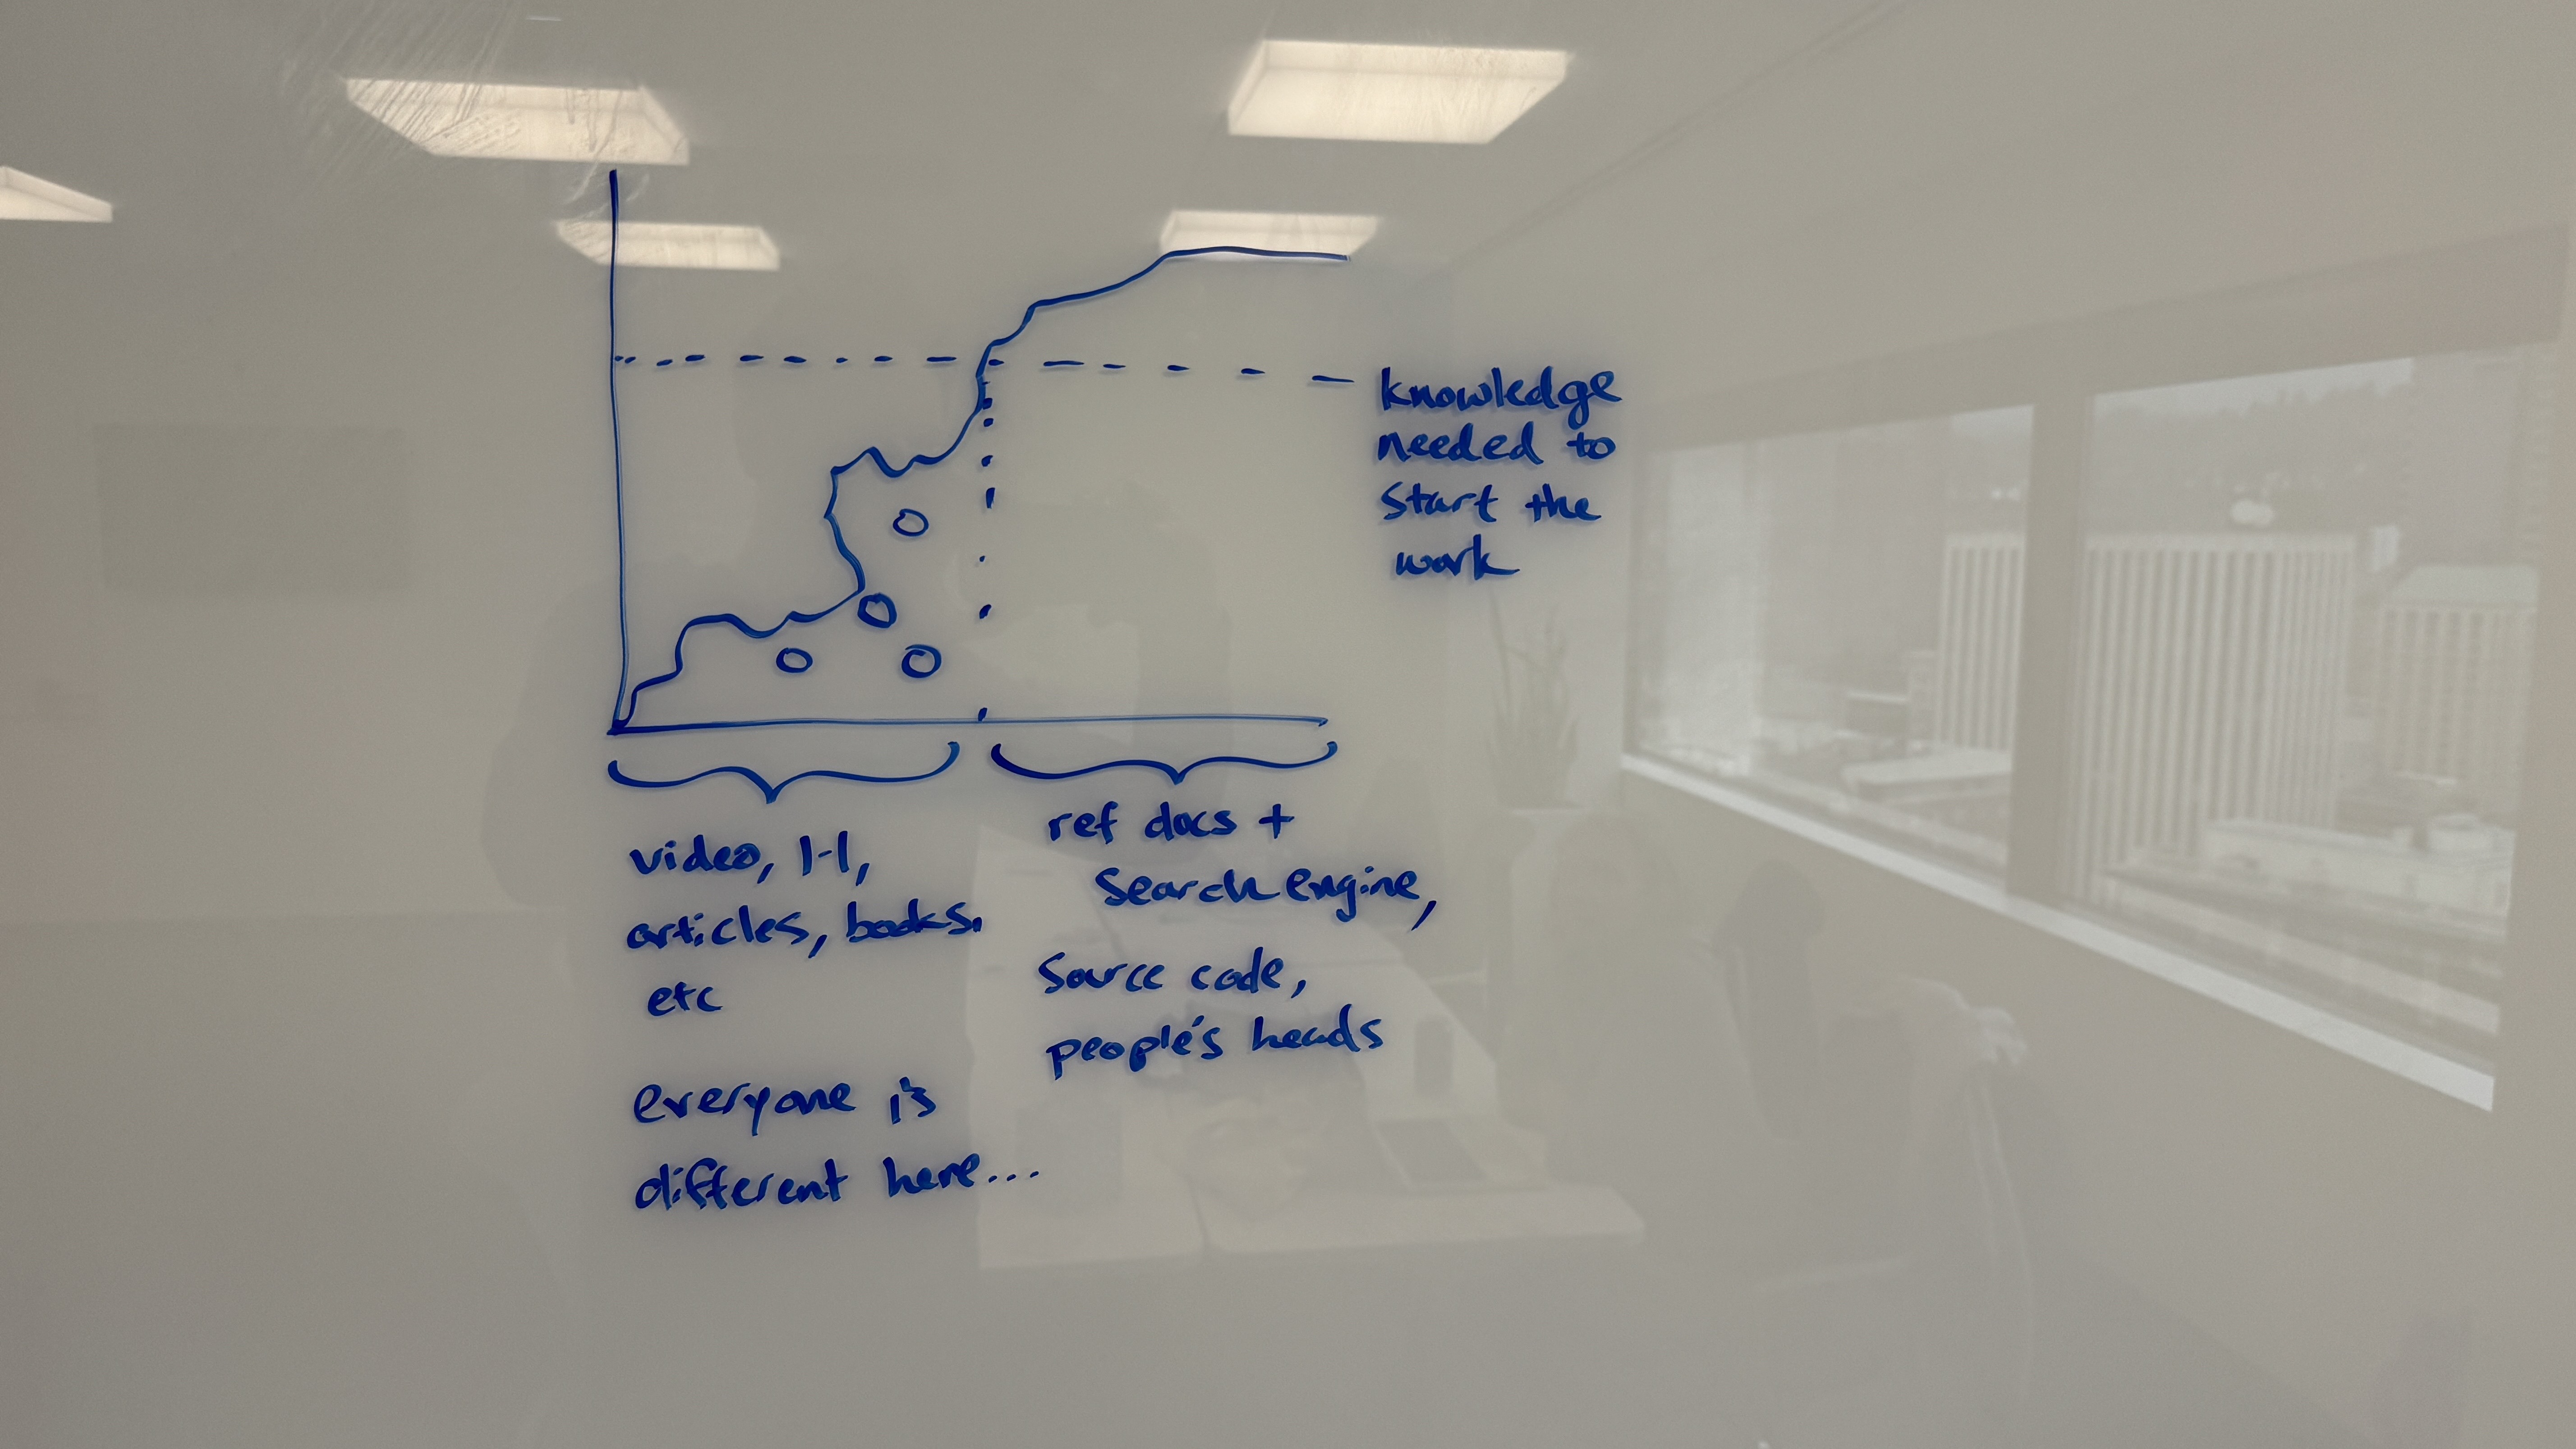 knowledge
needed to
start the
work
video, 1-1,
articles, books,
etc
everyone is
different here...
ref docs +
search engine,
source code,
people's heads